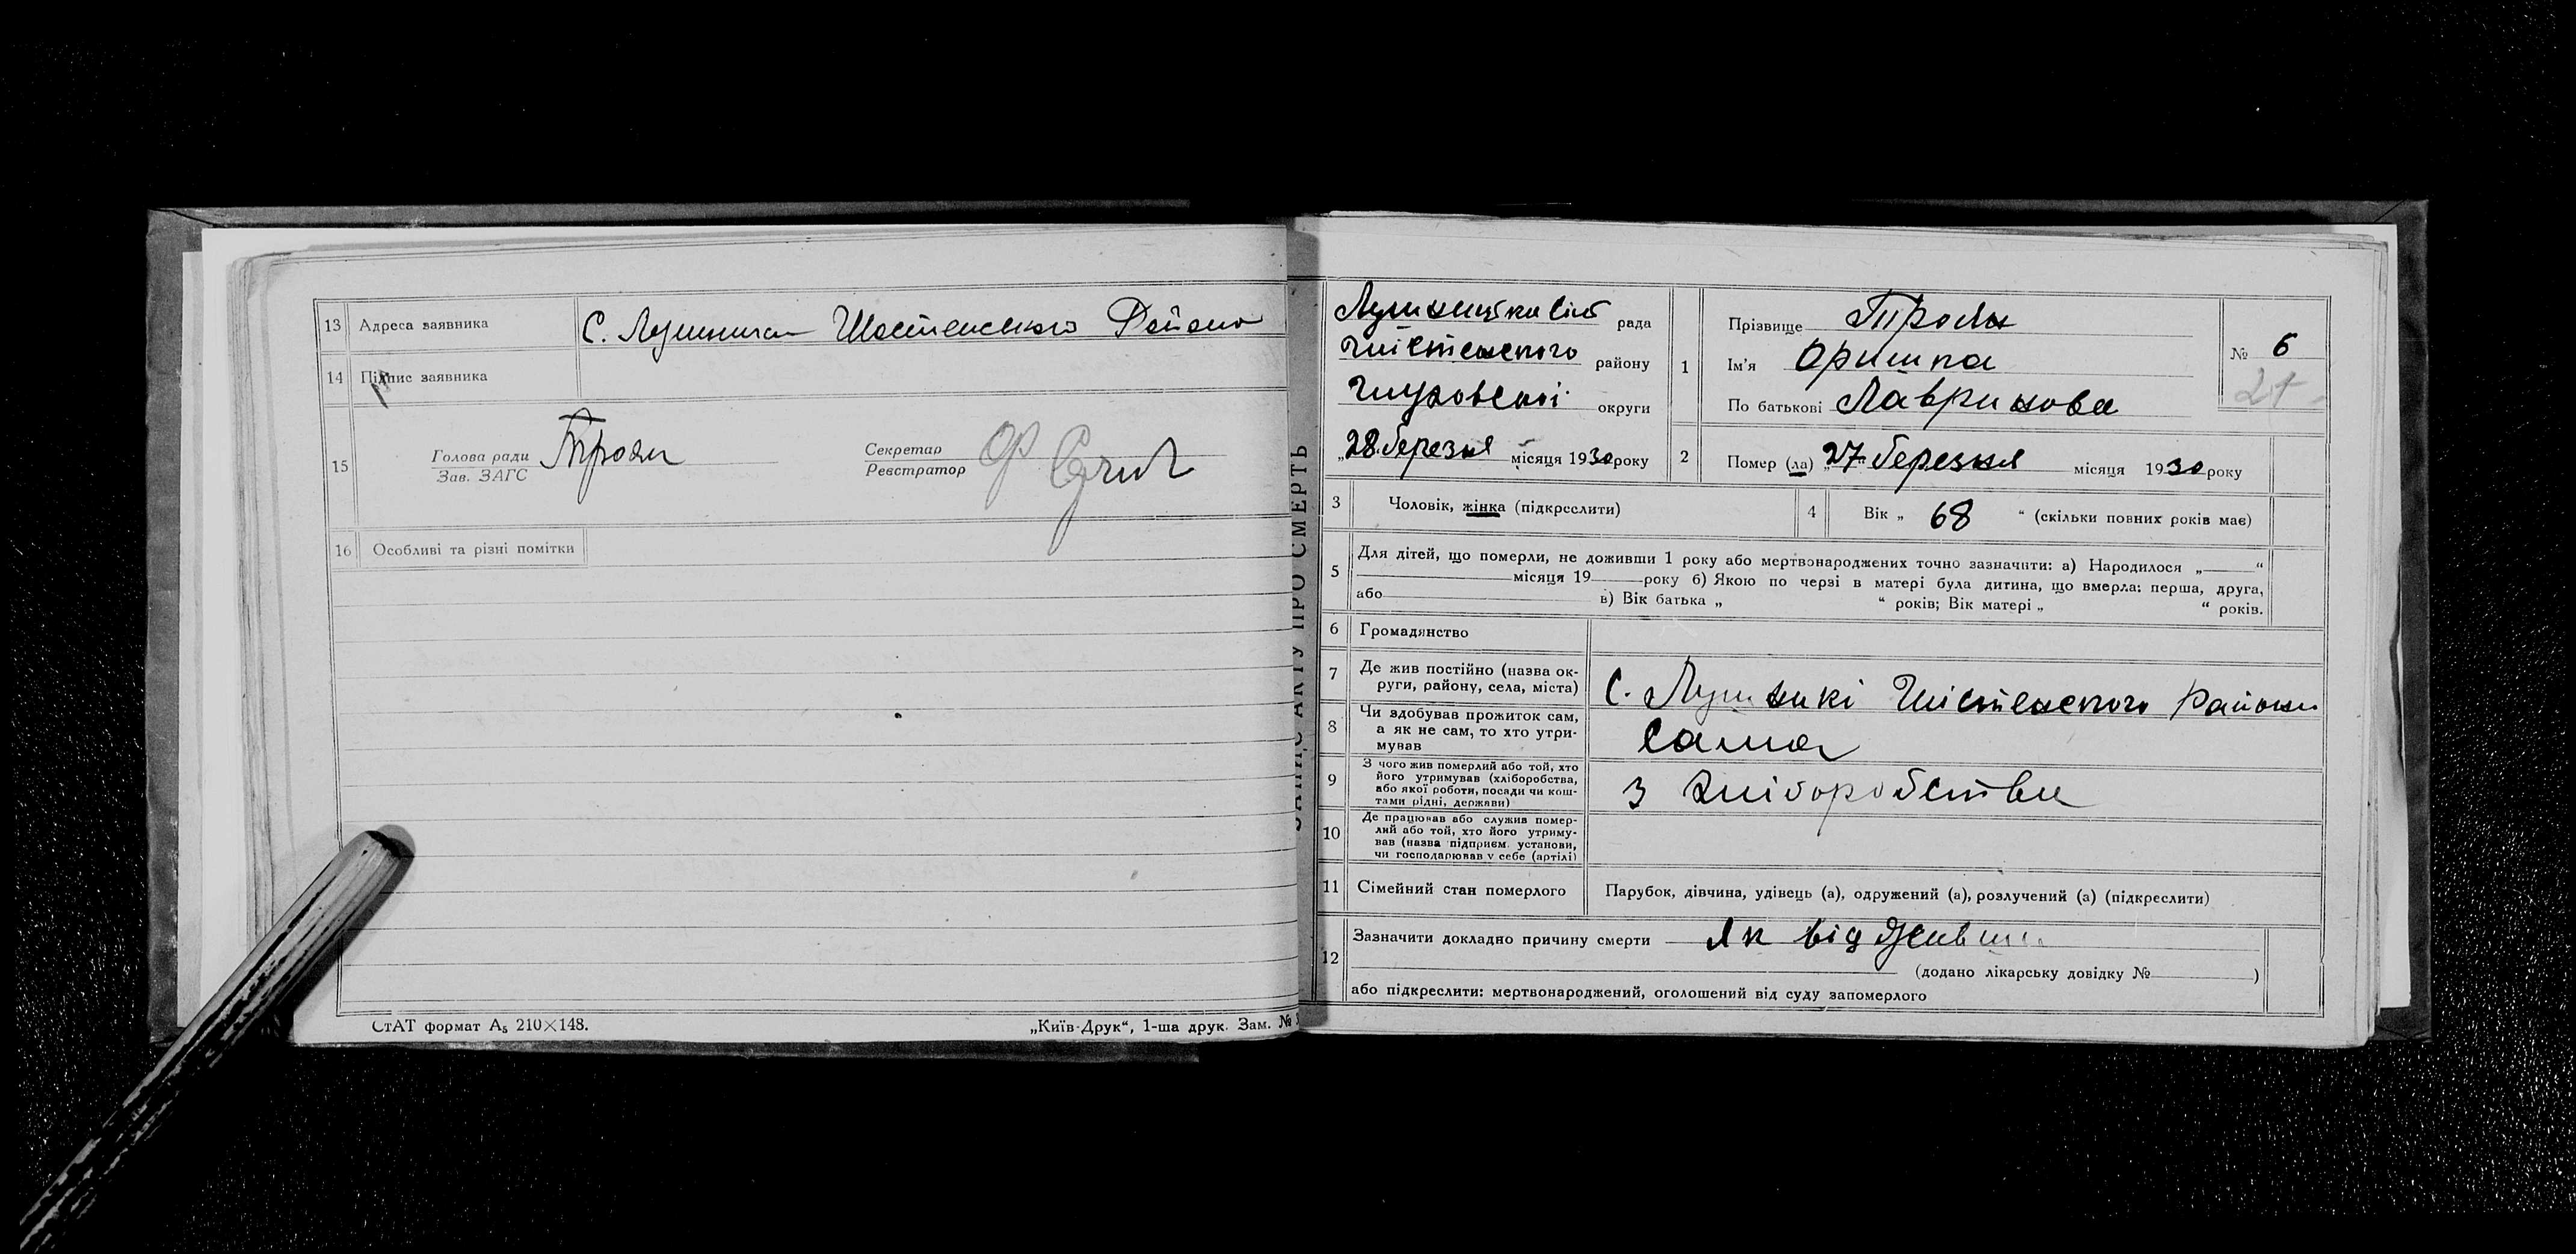 13 Адреса заявника С. Лушники Шостенського Району
14 Підпис заявника
15 Голова ради Троян Секретар
Зав. ЗАГС Реєстратор
16 Особливі та різні помітки
СтАТ формат А₅ 210×148. „Київ-Друк“, 1-ша друк. Зам. №
ЗАПИС АКТУ ПРО СМЕРТЬ
рада
району
округи
„28 березня місяця 1930 року
1 Прізвище Троян
Ім'я Оришка
По батькові Лавринова
№ 6
21
2 Помер (ла) „27“ березня місяця 1930 року
3 Чоловік, жінка (підкреслити)
4 Вік „ 68 “ (скільки повних років має)
5 Для дітей, що померли, не доживши 1 року або мертвонароджених точно зазначити: а) Народилося „ “
місяця 19 року б) Якою по черзі в матері була дитина, що вмерла: перша, друга,
або в) Вік батька „ “ років; Вік матері „ “ років.
6 Громадянство
7 Де жив постійно (назва ок-
руги, району, села, міста) С. Лушникі Шістенского Району
8 Чи здобував прожиток сам,
а як не сам, то хто утри-
мував Сама
9 З чого жив померлий або той, хто
його утримував (хліборобства,
або якої роботи, посади чи кош-
тами рідні, держави) З хліборобства
10 Де працював або служив помер-
лий або той, хто його утриму-
вав (назва підприєм. установи,
чи господарював у себе (артілі)
11 Сімейний стан померлого Парубок, дівчина, удівець (а), одружений (а), розлучений (а) (підкреслити)
12 Зазначити докладно причину смерти Як від
(додано лікарську довідку № )
або підкреслити: мертвонароджений, оголошений від суду запомерлого